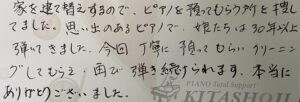 家を建て替えするので、ピアノを預ってもらう所を捜し
てました。思い出のあるピアノで、娘たちは30年以上
弾いてきました。今回丁寧に預ってもらいクリーニン
グしてもらえ、再び弾き続けられます。本当に
ありがとうございました。
PIANO Total Support
KITASHOJI